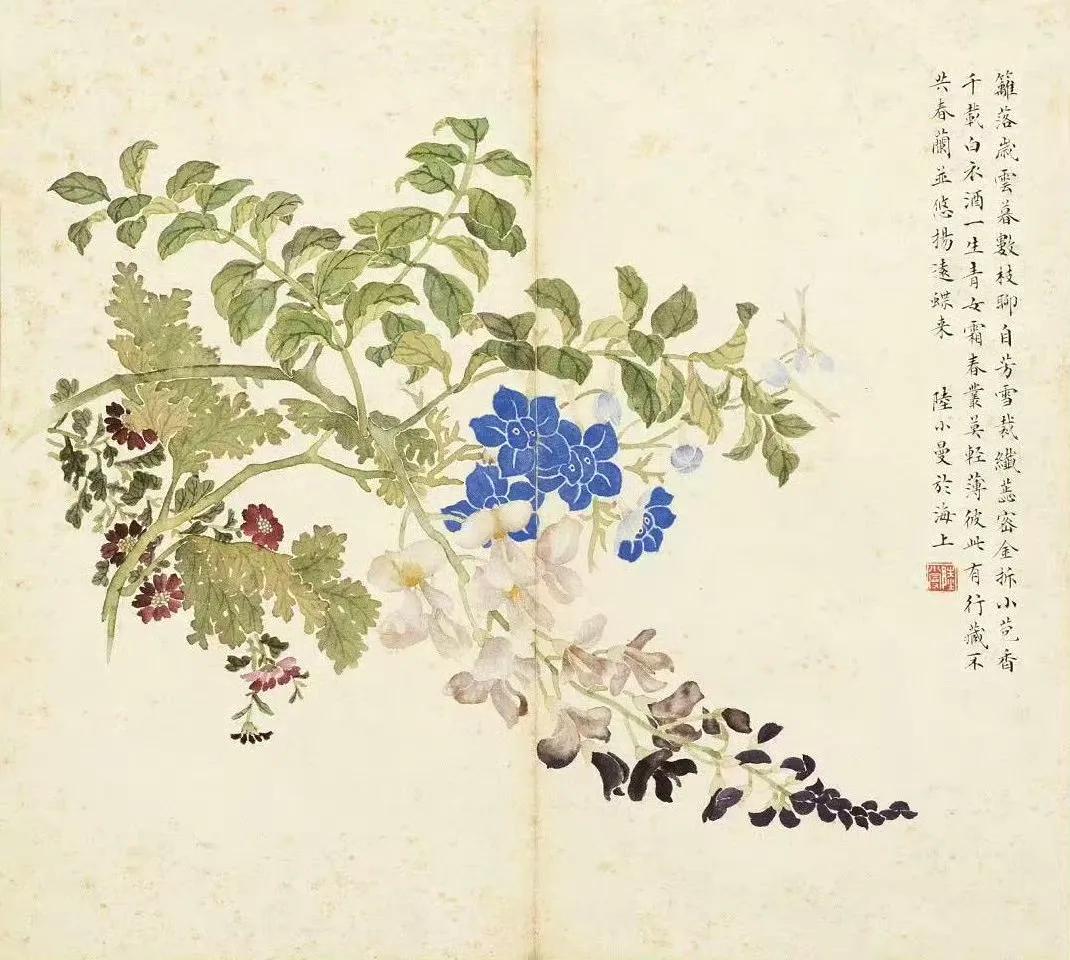 籬落歲雲暮數枝聊自芳雪裁纖蕊密金拆小苞香
千載白衣酒一生青女霜春叢莫輕薄彼此有行藏不
共春蘭並悠揚遠蝶来 陸小曼於海上